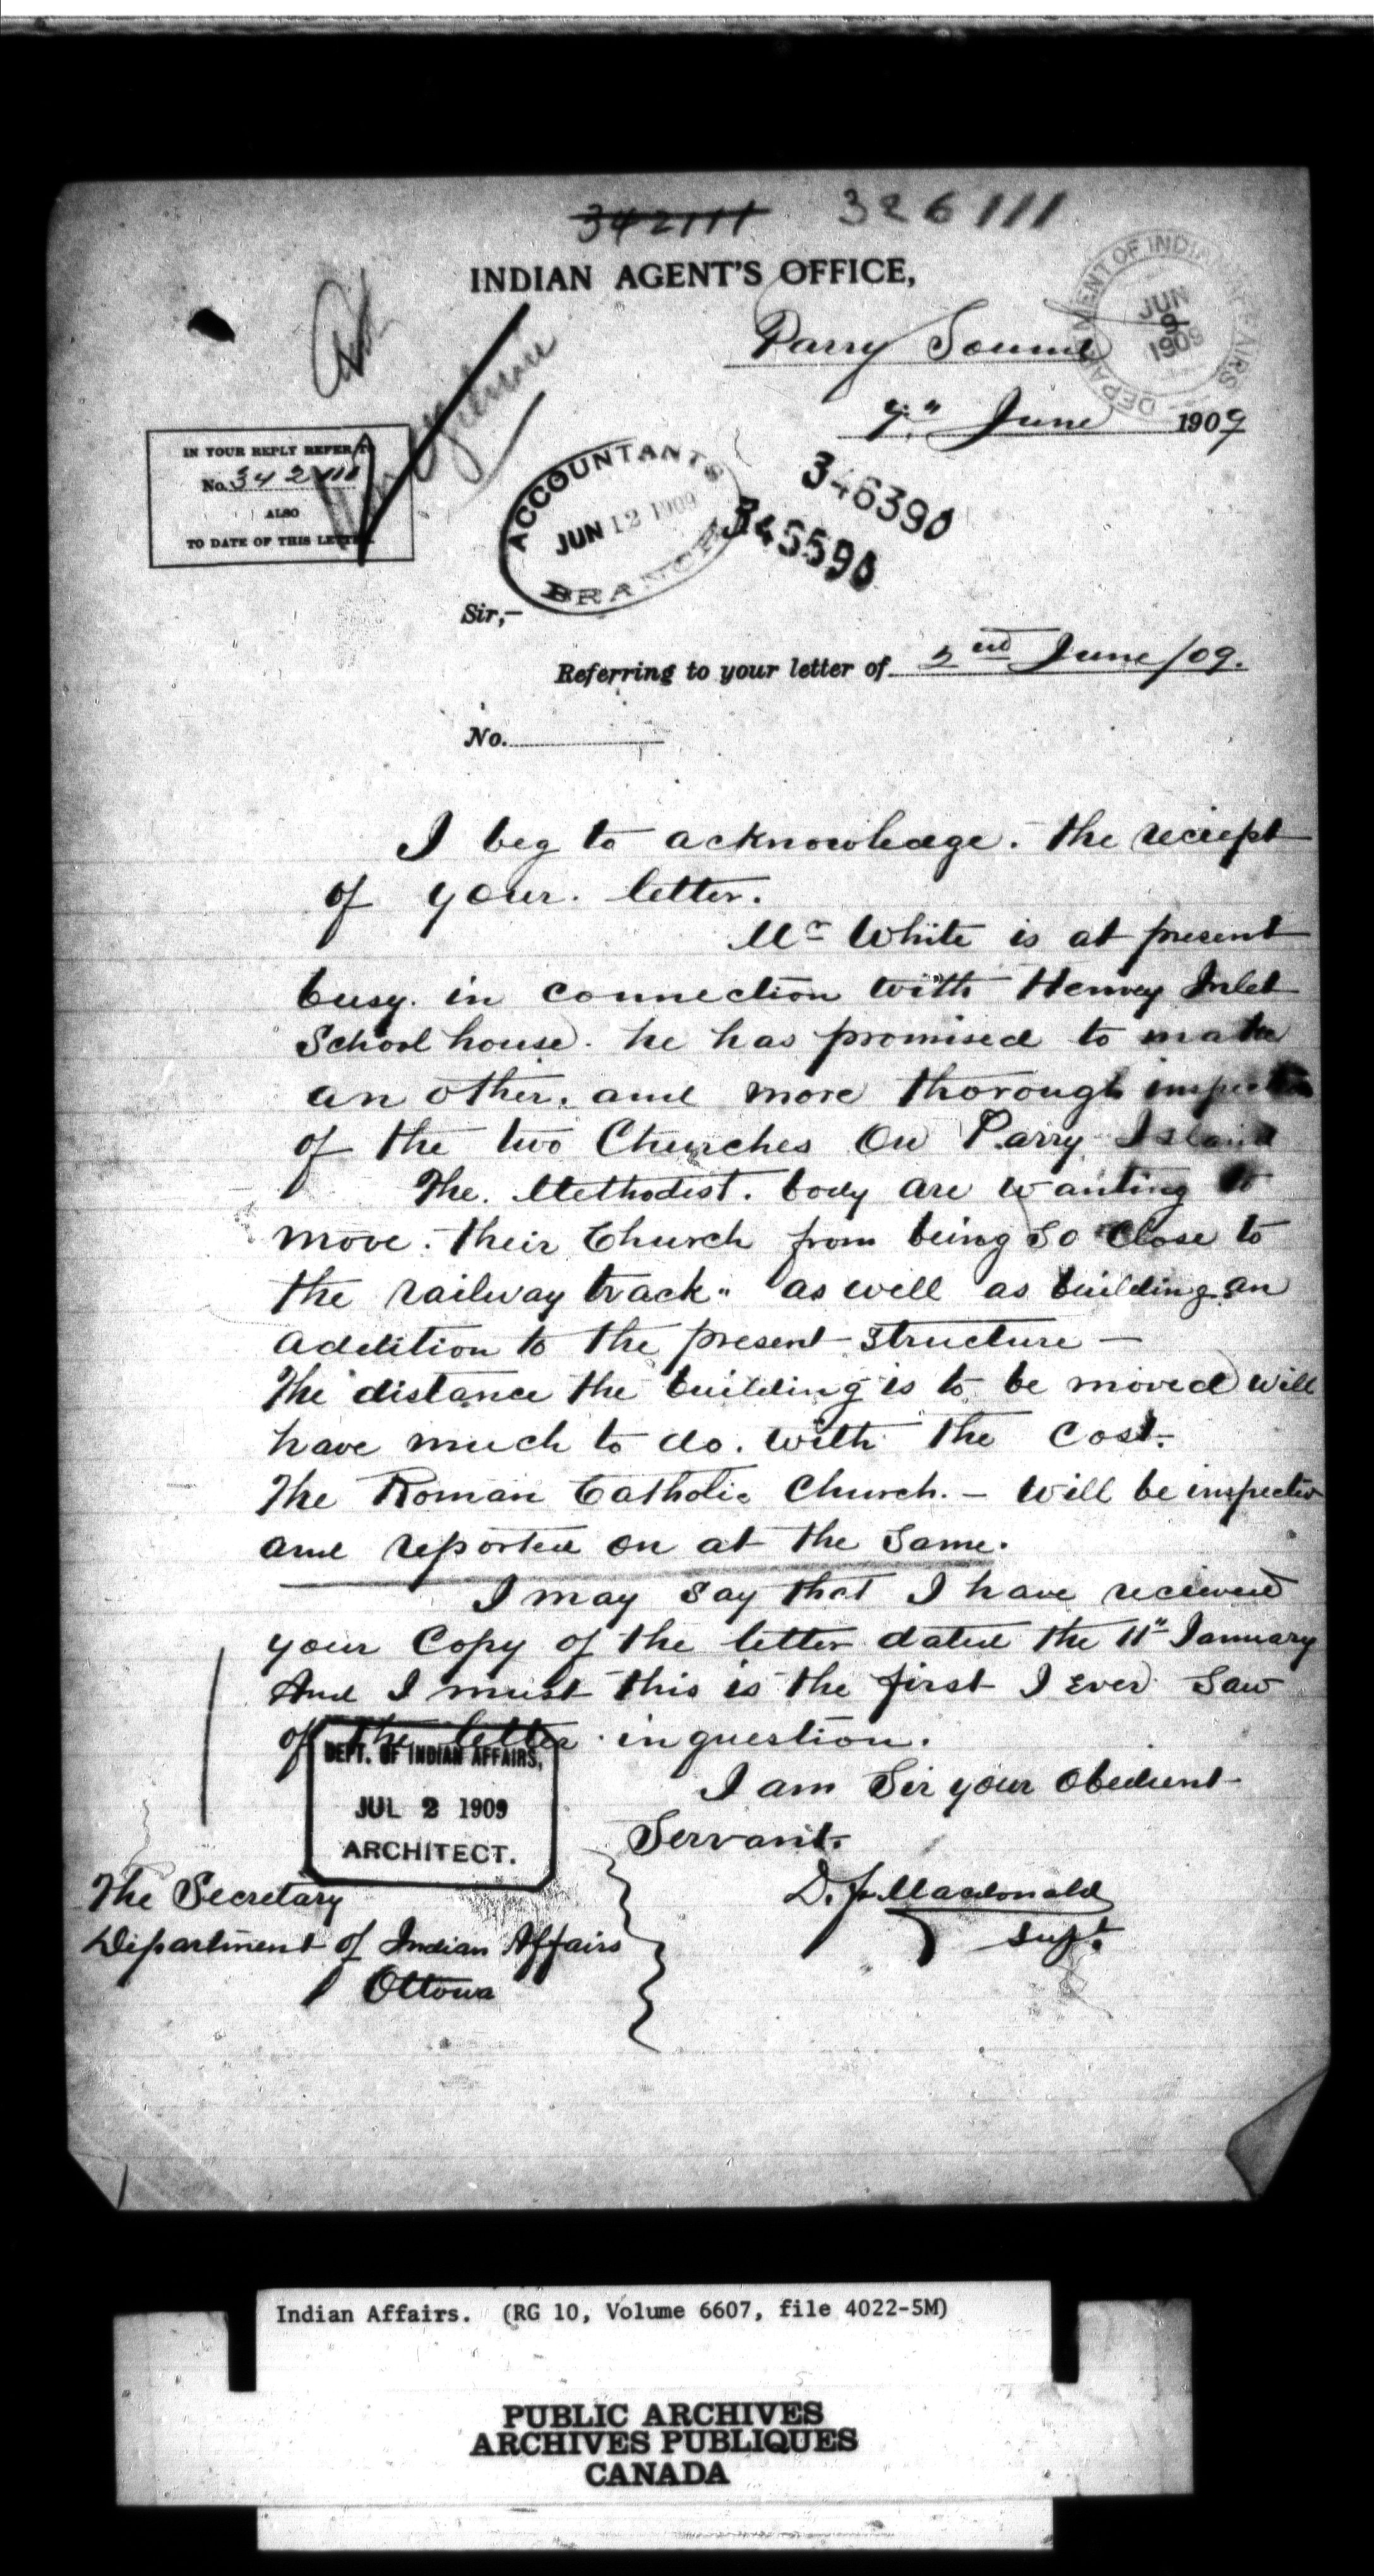 342111 326111
INDIAN AGENT'S OFFICE,
DEPARTMENT OF INDIAN AFFAIRS
JUN
9
1909
Parry Sound
7" June 1909
IN YOUR REPLY REFER TO
No. 342111
ALSO
TO DATE OF THIS LETTER.
ACCOUNTANT'S
JUN 12 1909
BRANCH
346390
346590
Sir,-
Referring to your letter of 2nd June/09.
No.
I beg to acknowledge. the reciept
of your. letter.
Mr White is at present
busy. in connection with Henvey Inlet
School house. he has promised to make
an other. and more thorough inspection
of the two Churches On Parry Island
The. Methodist. body are wanting to
move. their Church from being so close to
the railway track" as well as building an
addition to the present structure —
The distance the building is to be moved will
have much to do. with the Cost.
The Roman Catholic Church. — will be inspected
and reported on at the same.
I may say that I have recieved
your Copy of the letter dated the 11" January
And I must this is the first I Ever Saw
of the letter in question.
I am Sir your Obedient
Servant.
D. F. Macdonald
Supt.
DEPT. OF INDIAN AFFAIRS,
JUL 2 1909
ARCHITECT.
The Secretary
Department of Indian Affairs
Ottowa
Indian Affairs. (RG 10, Volume 6607, file 4022-5M)
PUBLIC ARCHIVES
ARCHIVES PUBLIQUES
CANADA